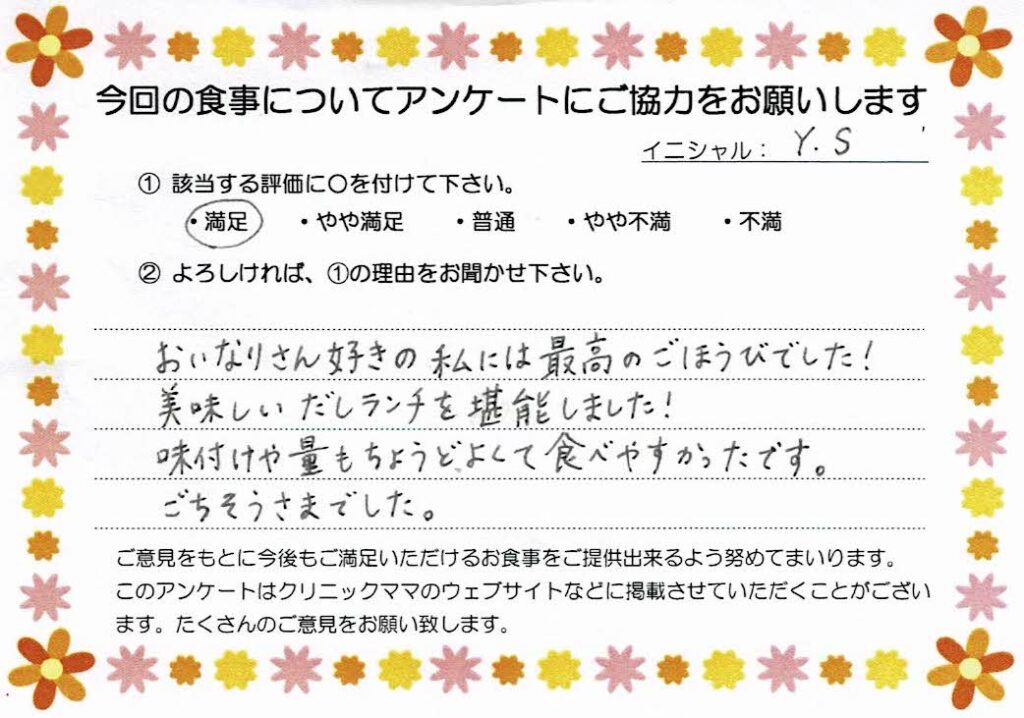 今回の食事についてアンケートにご協力をお願いします
イニシャル： Y.S
① 該当する評価に〇を付けて下さい。
・満足 ・やや満足 ・普通 ・やや不満 ・不満
② よろしければ、①の理由をお聞かせ下さい。
おいなりさん好きの私には最高のごほうびでした！
美味しいだしランチを堪能しました！
味付けや量もちょうどよくて食べやすかったです。
ごちそうさまでした。
ご意見をもとに今後もご満足いただけるお食事をご提供出来るよう努めてまいります。
このアンケートはクリニックママのウェブサイトなどに掲載させていただくことがござい
ます。たくさんのご意見をお願い致します。